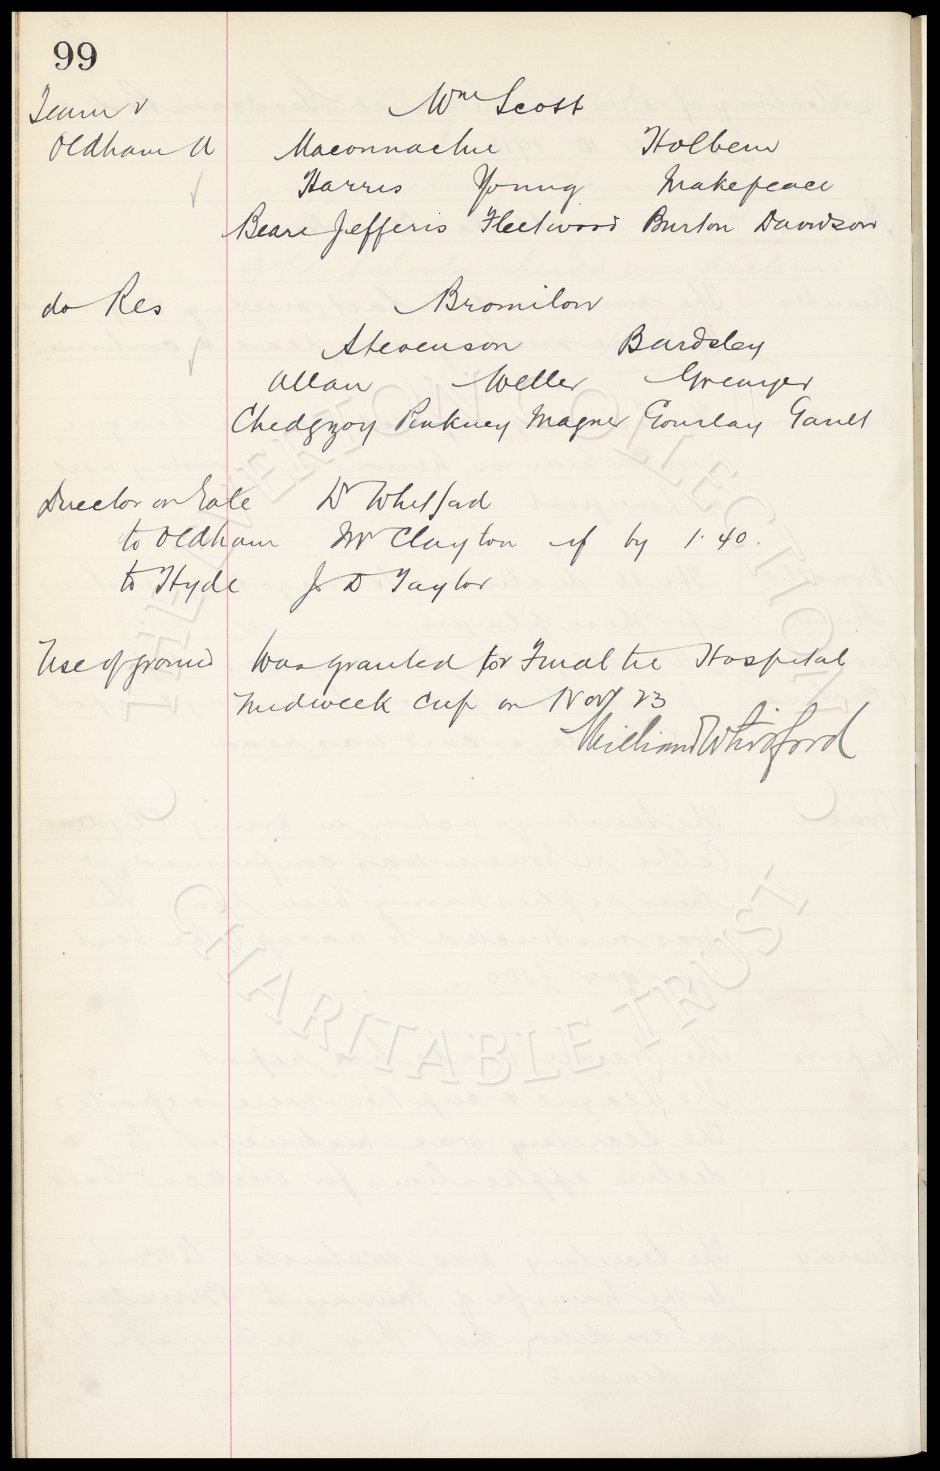 99
Team v Wm Scott
Oldham A Maconnachie Holbem
Harris Young Makepeace
Beare Jefferis Fleetwood Burton Davidson
do Res Bromilow
Stevenson Bardsley
Allan Weller Grenyer
Chedgzoy Pinkney Magner Gourlay Gault
Director on Gate Dr Whitford
to Oldham Mr Clayton if by 1.40.
to Hyde Jr D Taylor
Use of ground Was granted for Final tie Hospital
Midweek Cup on Nov 23
William Whitford
THE EVERTON COLLECTION
CHARITABLE TRUST